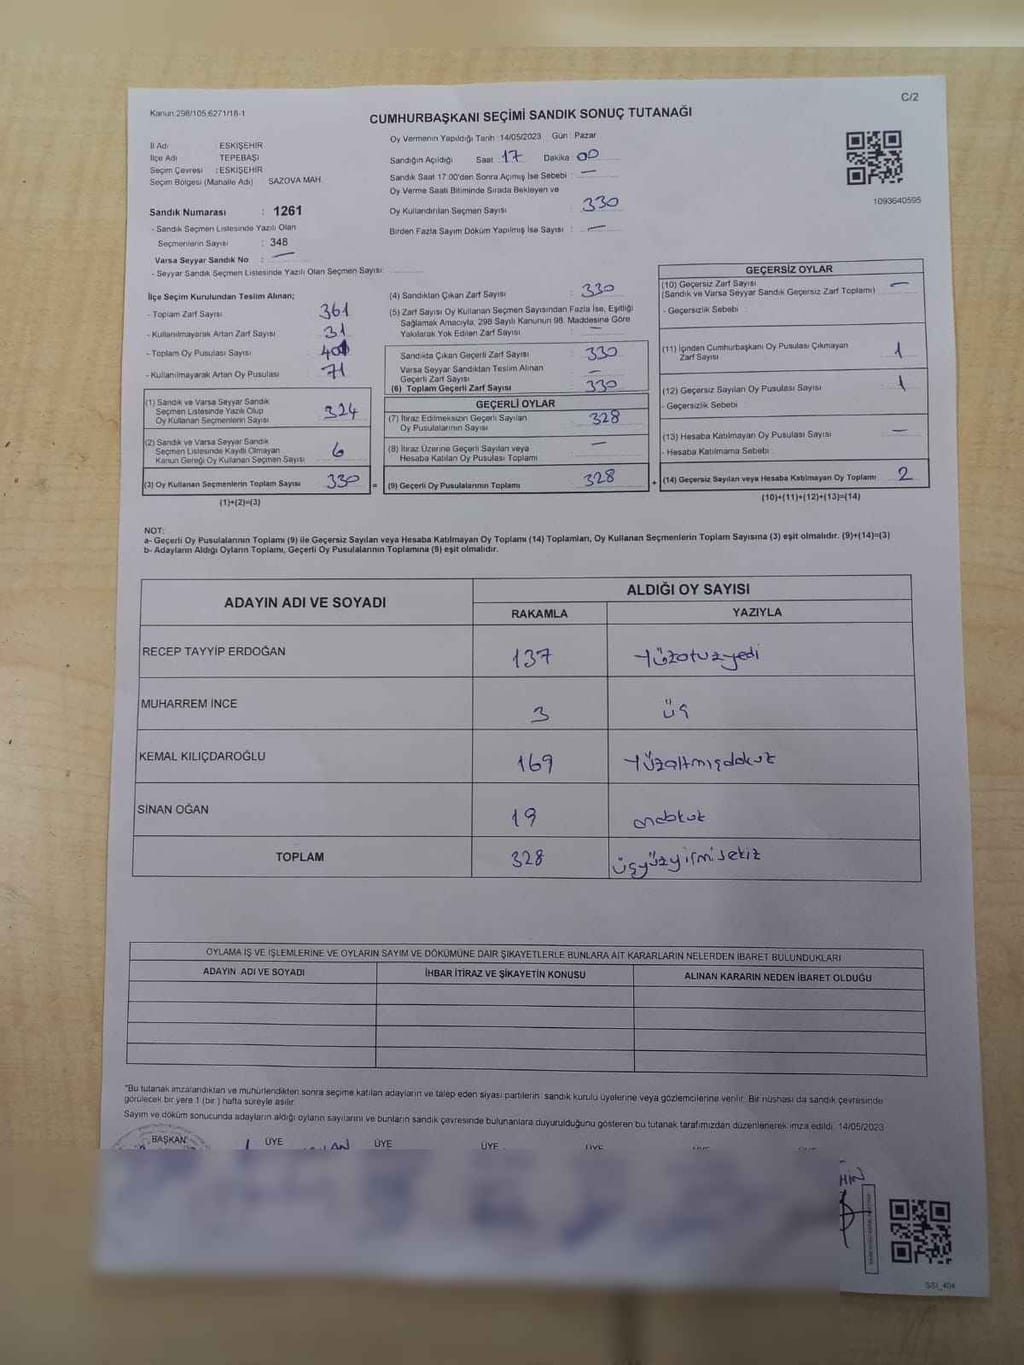 C/2
Kanun:298/105,6271/18-1
CUMHURBAŞKANI SEÇİMİ SANDIK SONUÇ TUTANAĞI
İl Adı : ESKİŞEHİR
İlçe Adı : TEPEBAŞI
Seçim Çevresi : ESKİŞEHİR
Seçim Bölgesi (Mahalle Adı) SAZOVA MAH.
Sandık Numarası : 1261
- Sandık Seçmen Listesinde Yazılı Olan
Seçmenlerin Sayısı : 348
Varsa Seyyar Sandık No : —
- Seyyar Sandık Seçmen Listesinde Yazılı Olan Seçmen Sayısı:
Oy Vermenin Yapıldığı Tarih :14/05/2023 Gün : Pazar
Sandığın Açıldığı Saat : 17 Dakika : 00
Sandık Saat 17:00'den Sonra Açımış İse Sebebi : —
Oy Verme Saati Bitiminde Sırada Bekleyen ve
Oy Kullandırılan Seçmen Sayısı : 330
Birden Fazla Sayım Döküm Yapılmış İse Sayısı : —
1093640595
İlçe Seçim Kurulundan Teslim Alınan;
- Toplam Zarf Sayısı : 361
- Kullanılmayarak Artan Zarf Sayısı : 31
- Toplam Oy Pusulası Sayısı : 401
- Kullanılmayarak Artan Oy Pusulası : 71
(1) Sandık ve Varsa Seyyar Sandık
Seçmen Listesinde Yazılı Olup
Oy Kullanan Seçmenlerin Sayısı : 324
(2) Sandık ve Varsa Seyyar Sandık
Seçmen Listesinde Kayıtlı Olmayan
Kanun Gereği Oy Kullanan Seçmen Sayısı : 6
(3) Oy Kullanan Seçmenlerin Toplam Sayısı : 330 =
(1)+(2)=(3)
(4) Sandıktan Çıkan Zarf Sayısı : 330
(5) Zarf Sayısı Oy Kullanan Seçmen Sayısından Fazla İse, Eşitliği
Sağlamak Amacıyla, 298 Sayılı Kanunun 98. Maddesine Göre
Yakılarak Yok Edilen Zarf Sayısı : —
Sandıkta Çıkan Geçerli Zarf Sayısı : 330
Varsa Seyyar Sandıktan Teslim Alınan
Geçerli Zarf Sayısı : —
(6) Toplam Geçerli Zarf Sayısı : 330
GEÇERLİ OYLAR
(7) İtiraz Edilmeksizin Geçerli Sayılan
Oy Pusulalarının Sayısı : 328
(8) İtiraz Üzerine Geçerli Sayılan veya
Hesaba Katılan Oy Pusulası Toplamı : —
(9) Geçerli Oy Pusulalarının Toplamı : 328 +
GEÇERSİZ OYLAR
(10) Geçersiz Zarf Sayısı : —
(Sandık ve Varsa Seyyar Sandık Geçersiz Zarf Toplamı)
- Geçersizlik Sebebi :
(11) İçinden Cumhurbaşkanı Oy Pusulası Çıkmayan
Zarf Sayısı : 1
(12) Geçersiz Sayılan Oy Pusulası Sayısı : 1
- Geçersizlik Sebebi :
(13) Hesaba Katılmayan Oy Pusulası Sayısı : —
- Hesaba Katılmama Sebebi :
(14) Geçersiz Sayılan veya Hesaba Katılmayan Oy Toplamı : 2
(10)+(11)+(12)+(13)=(14)
NOT:
a- Geçerli Oy Pusulalarının Toplamı (9) ile Geçersiz Sayılan veya Hesaba Katılmayan Oy Toplamı (14) Toplamları, Oy Kullanan Seçmenlerin Toplam Sayısına (3) eşit olmalıdır. (9)+(14)=(3)
b- Adayların Aldığı Oyların Toplamı, Geçerli Oy Pusulalarının Toplamına (9) eşit olmalıdır.
ADAYIN ADI VE SOYADI ALDIĞI OY SAYISI
RAKAMLA YAZIYLA
RECEP TAYYİP ERDOĞAN 137 Yüzotuzyedi
MUHARREM İNCE 3 üç
KEMAL KILIÇDAROĞLU 169 Yüzaltmışdokuz
SİNAN OĞAN 19 ondokuz
TOPLAM 328 üçyüzyirmisekiz
OYLAMA İŞ VE İŞLEMLERİNE VE OYLARIN SAYIM VE DÖKÜMÜNE DAİR ŞİKAYETLERLE BUNLARA AİT KARARLARIN NELERDEN İBARET BULUNDUKLARI
ADAYIN ADI VE SOYADI İHBAR İTİRAZ VE ŞİKAYETİN KONUSU ALINAN KARARIN NEDEN İBARET OLDUĞU
"Bu tutanak imzalandıktan ve mühürlendikten sonra seçime katılan adayların ve talep eden siyasi partilerin sandık kurulu üyelerine veya gözlemcilerine verilir. Bir nüshası da sandık çevresinde
görülecek bir yere 1 (bir ) hafta süreyle asılır.
Sayım ve döküm sonucunda adayların aldığı oyların sayılarını ve bunların sandık çevresinde bulunanlara duyurulduğunu gösteren bu tutanak tarafımızdan düzenlenerek imza edildi. 14/05/2023
BAŞKAN ÜYE ÜYE ÜYE ÜYE
SSI_404